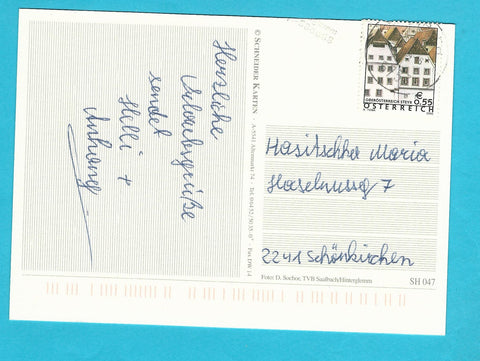 Herzliche
Urlaubsgrüße
sendet
Helli +
Anhang
© SCHNEIDER KARTEN
€ 0,55
OBERÖSTERREICH STEYR
ÖSTERREICH
Hasitschka Maria
Haselnussg 7
2241 Schönkirchen
Foto: D. Sochor, TVB Saalbach/Hinterglemm
SH 047